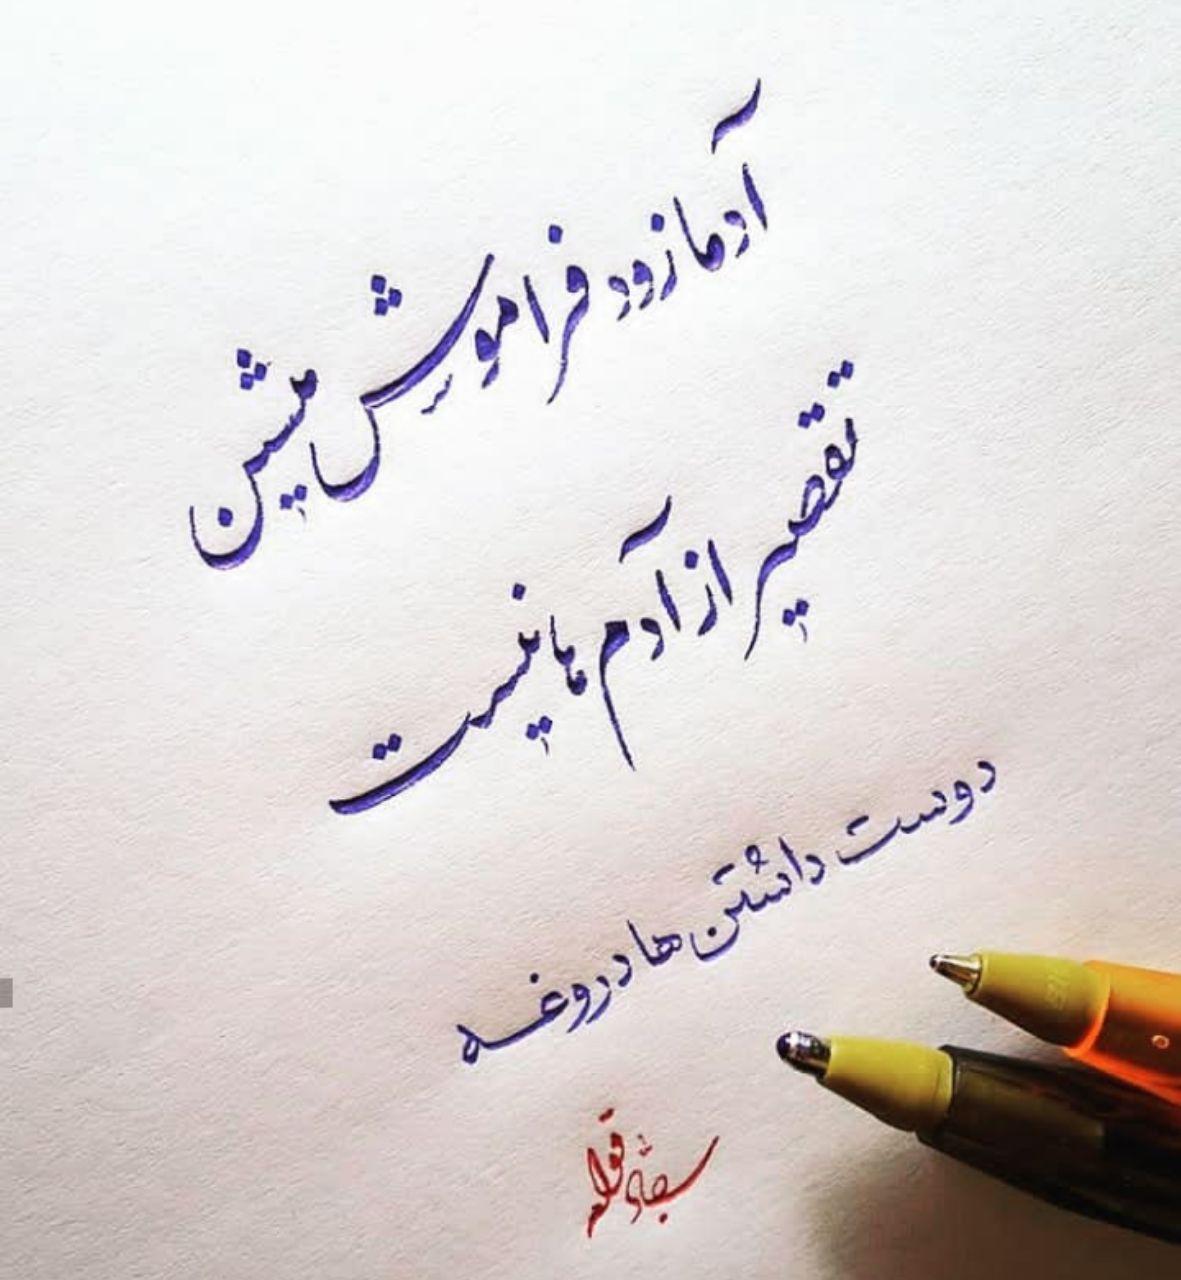 آدما زود فراموش میشن
تقصیر از آدم ها نیست
دوست داشتن ها دروغه